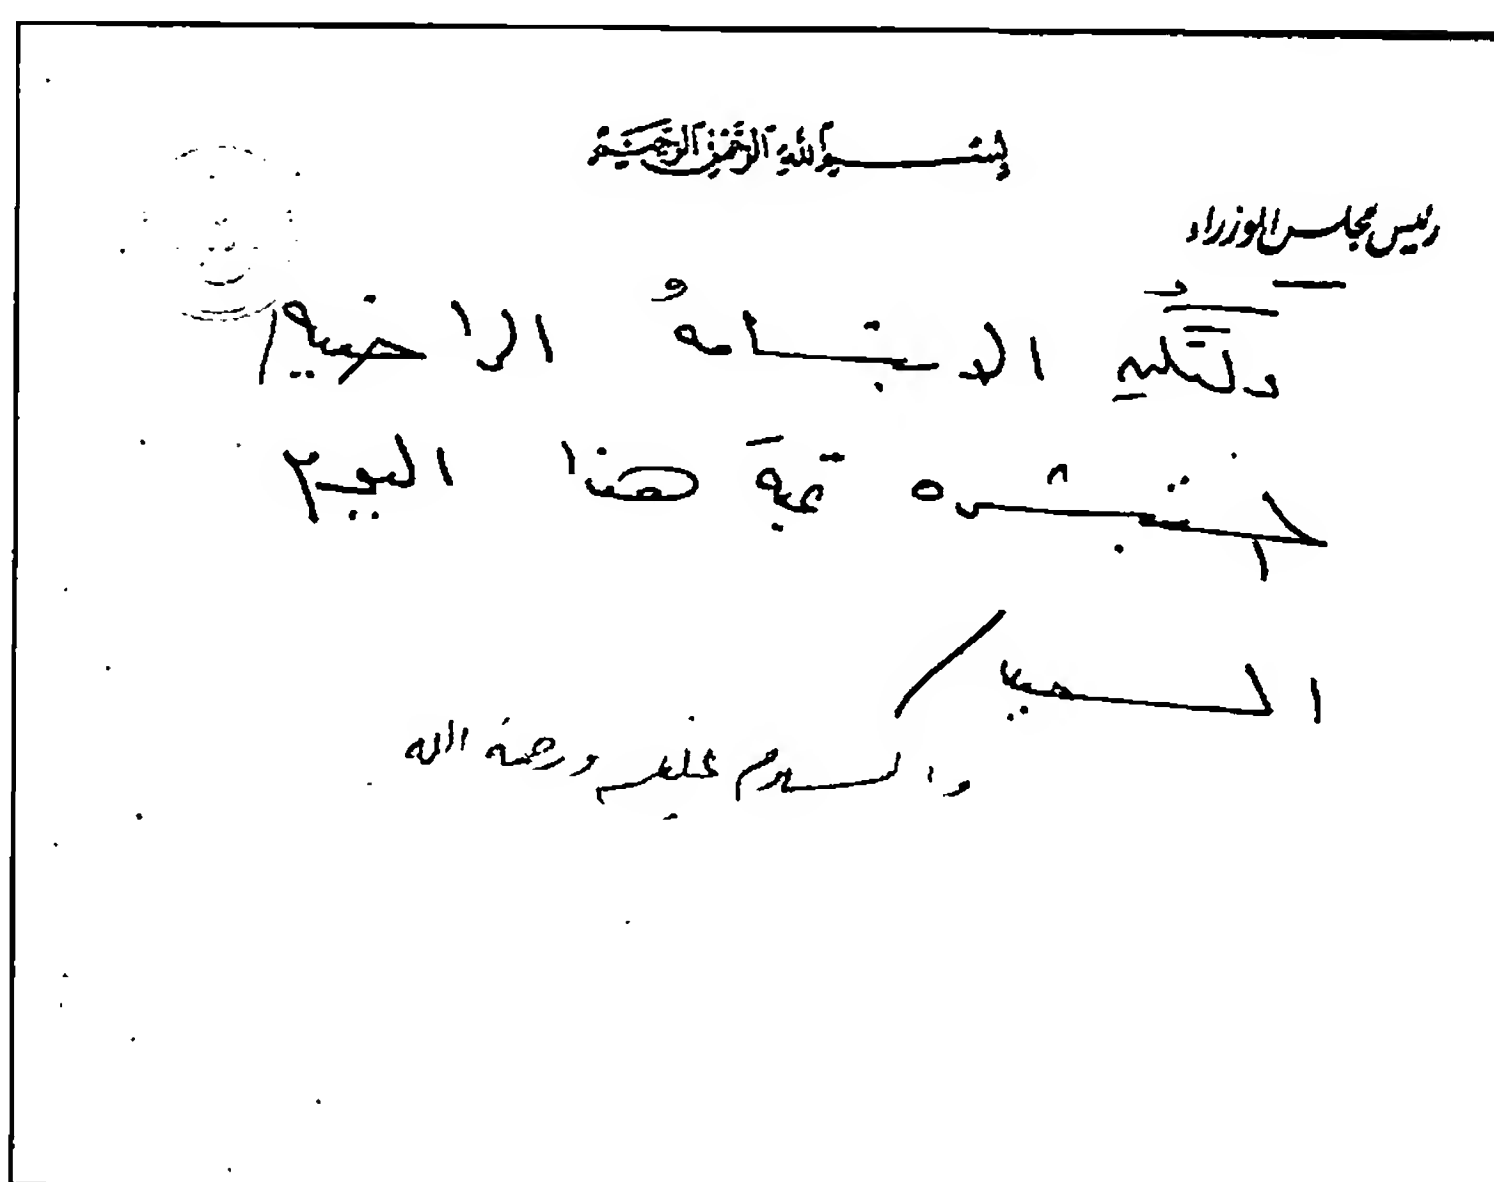 بسم الله الرحمن الرحيم
رئيس مجلس الوزراء
ولتكن الابتسامة الاخيره
هذا اليوم
السعيد /
والسلام عليكم ورحمة الله